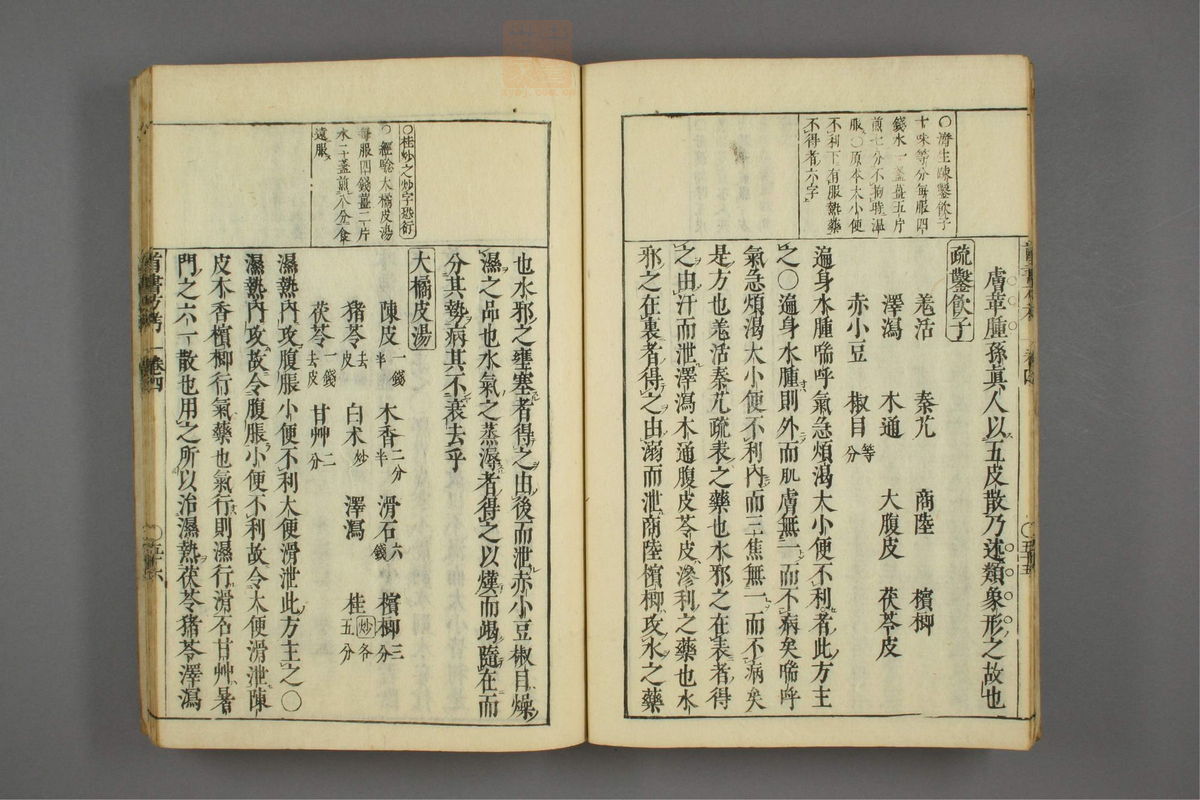 ○濟生疎鑿飮子
十味等分每服四
錢水一盞薑五片
煎七分不拘時溫
服○原本大小便
不利下有服熱藥
不得者六字
膚革腫孫真人以五皮散乃述類象形之故也
疏鑿飮子
羗活 秦艽 商陸 檳榔
澤瀉 木通 大腹皮 茯苓皮
赤小豆 椒目等分
遍身水腫喘呼氣急煩渴大小便不利者此方主
之○遍身水腫則外而肌膚無一而不病矣喘呼
氣急煩渴大小便不利內而三焦無一而不病矣
是方也羗活秦艽疏表之藥也水邪之在表者得
之由汗而泄澤瀉木通腹皮苓皮滲利之藥也水
邪之在裏者得之由溺而泄商陸檳榔攻水之藥
○桂炒之炒字恐衍
○經驗大橘皮湯
每服四錢薑二片
水二盞煎八分食
遠服
也水邪之壅塞者得之由後而泄赤小豆椒目燥
濕之品也水氣之蒸溽者得之以熯而竭隨在而
分其勢病其不衰去乎
大橘皮湯
陳皮一錢半 木香二分半 滑石六錢 檳榔三分
豬苓去皮 白术炒 澤瀉 桂炒各五分
茯苓一錢去皮 甘艸二分
濕熱內攻腹脹小便不利大便滑泄此方主之○
濕熱內攻故令腹脹小便不利故令大便滑泄陳
皮木香檳榔行氣藥也氣行則濕行滑石甘艸暑
門之六一散也用之所以治濕熱茯苓豬苓澤瀉
卷四
五十六